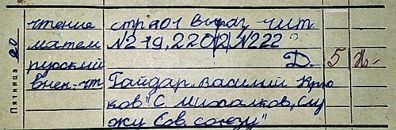 Пятница
чтение стр 201 выраз. чит.
матем №219, 220(2), №222
русский Д. 5
внеч. чт Гайдар „Василий Крю
ков" С. Михалков „Слу
жу Сов. союзу"